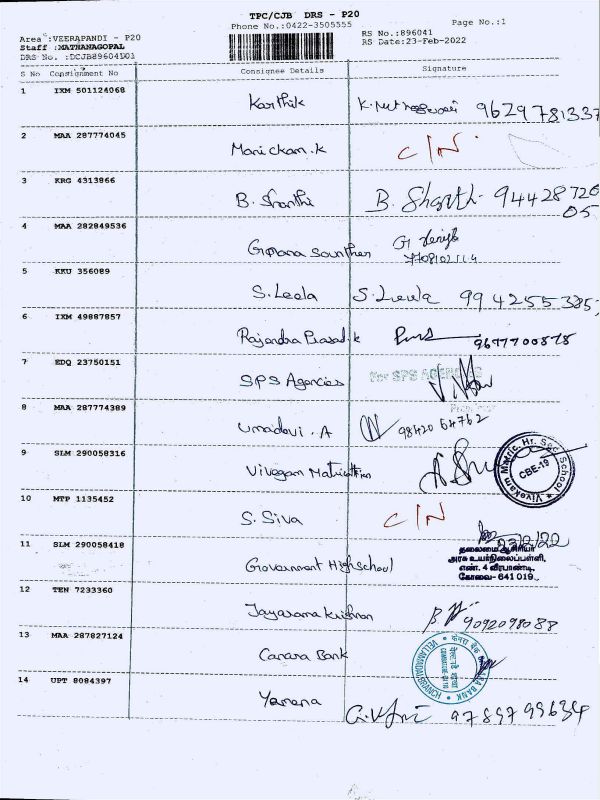 TPC/CJB DRS - P20
Phone No.:0422-3505555
Page No.:1
Area :VEERAPANDI - P20
Staff :MATHANAGOPAL
DRS No. :DCJB89604101
RS No.:896041
RS Date:23-Feb-2022
S No Consignment No Consignee Details Signature
1 IXM 501124068 Karthik 9629781337
2 MAA 287774045 Manickam.k C/N
3 KRG 4313866 B. Shanthi B. Shanthi 94428726
05
4 MAA 282849536 Gnana Sounther
5 KKU 356089 S. Leela S. Leela 994255385
6 IXM 49887857 Rajendra Prasad.k 9677700878
7 EDQ 23750151 SPS Agencies For SPS AGENCIES
8 MAA 287774389 Umadevi . A 98420 64762
9 SLM 290058316 Vivegam
Vivekam Matric. Hr. Sec. School
CBE-19
10 MTP 1135452 S. Siva C/N
11 SLM 290058418 Government Highschool 23/2/22
தலைமை ஆசிரியர்
அரசு உயர்நிலைப்பள்ளி,
எண். 4 வீரபாண்டி,
கோவை- 641 019.
12 TEN 7233360 Jayarama Krishnan 9092098088
13 MAA 287827124 Canara Bank
CANARA BANK
14 UPT 8084397 Yamuna 9789799634